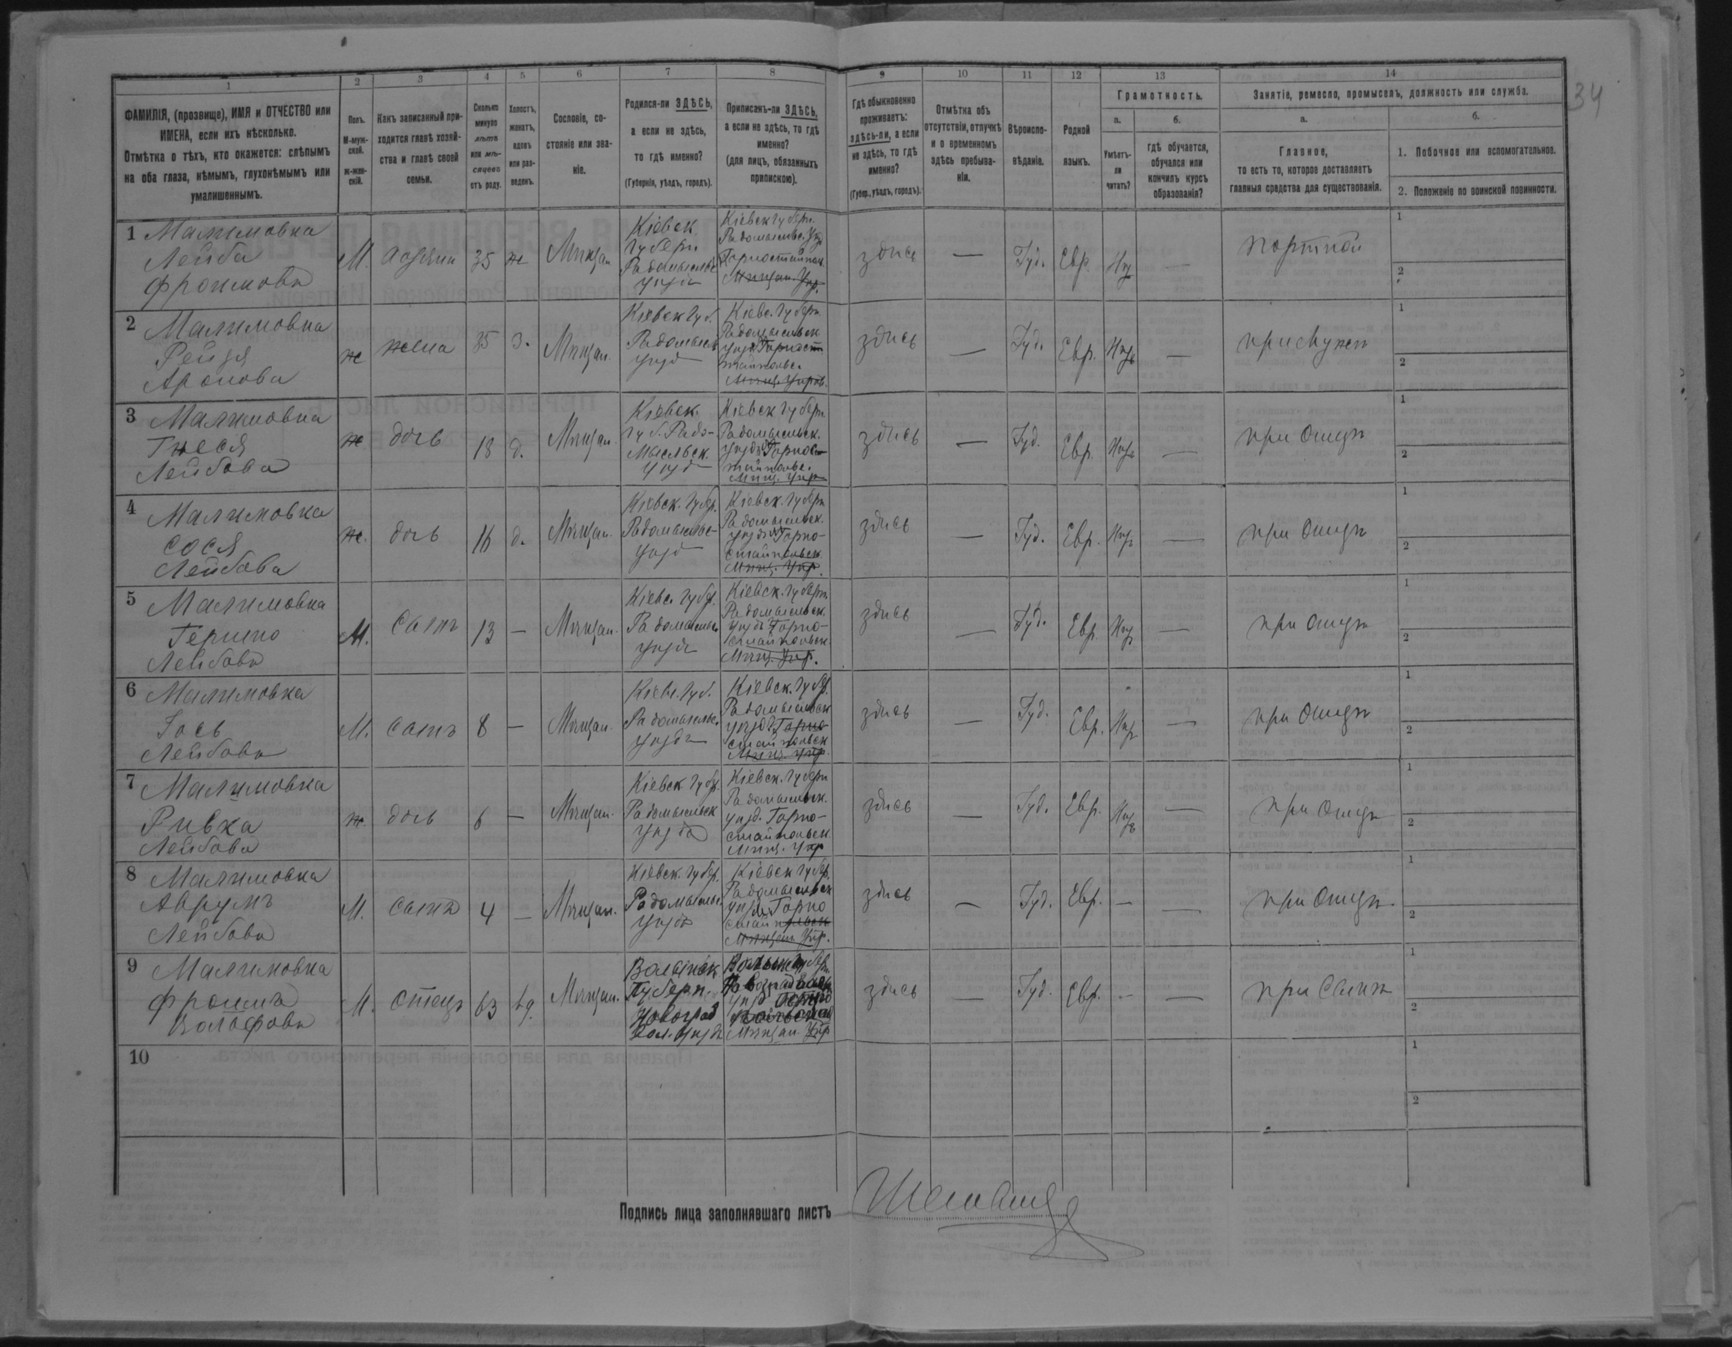 34
1 2 3 4 5 6 7 8 9 10 11 12 13 14
ФАМИЛІЯ, (прозвище), ИМЯ и ОТЧЕСТВО или
ИМЕНА, если ихъ нѣсколько.
Отмѣтка о тѣхъ, кто окажется: слѣпымъ
на оба глаза, нѣмымъ, глухонѣмымъ или
умалишеннымъ.
Полъ.
М-муж-
ской.
ж-жен-
скій.
Какъ записанный при-
ходится главѣ хозяй-
ства и главѣ своей
семьи.
Сколько
минуло
лѣтъ
или мѣ-
сяцевъ
отъ роду.
Холостъ,
женатъ,
вдовъ
или раз-
веденъ.
Сословіе, со-
стояніе или зва-
ніе.
Родился-ли ЗДѢСЬ,
а если не здѣсь,
то гдѣ именно?
(Губернія, уѣздъ, городъ).
Приписанъ-ли ЗДѢСЬ,
а если не здѣсь, то гдѣ
именно?
(для лицъ, обязанныхъ
припискою).
Гдѣ обыкновенно
проживаетъ:
здѣсь-ли, а если
не здѣсь, то гдѣ
именно?
(Губерн., уѣздъ, городъ).
Отмѣтка объ
отсутствіи, отлучкѣ
и о временномъ
здѣсь пребыва-
ніи.
Вѣроиспо-
вѣданіе.
Родной
языкъ.
Грамотность.
а.
Умѣетъ-
ли
читать?
б.
гдѣ обучается,
обучался или
кончилъ курсъ
образованія?
Занятіе, ремесло, промыселъ, должность или служба.
а.
Главное,
то есть то, которое доставляетъ
главныя средства для существованія.
б.
1. Побочное или вспомогательное.
2. Положеніе по воинской повинности.
1 Малимовка
Лейба
Фроимовъ
М. хозяин 35 ж Мѣщан.
Кіевск.
Губерн.
Радомысльс.
уѣзда
Кіевск Губерн.
Радомысльс. уѣз
Горностайпол.
Мѣщан. Упр.
здѣсь — Іуд. Евр. Нѣт — портной
1
2
2 Малимовка
Рейзя
Аронова
ж жена 35 з. Мѣщан.
Кіевск Губ.
Радомысльс
уѣзд
Кіевс. Губерн
Радомысльск
уѣзд Горност
тайпольс.
Мѣщ. Управ.
здѣсь — Іуд. Евр. Нѣтъ — при мужѣ
1
2
3 Малимовка
Гнеся
Лейбова
ж дочь 18 д. Мѣщан.
Кіевск.
Губ. Радо-
мысльск.
уѣзд
Кіевск Губерн
Радомысльск.
уѣзда Горнос-
тайпольс.
Мѣщ. Упр
здѣсь — Іуд. Евр. Нѣтъ — при отцѣ
1
2
4 Малимовка
Сося
Лейбова
ж. дочь 16 д. Мѣщан.
Кіевск. Губер.
Радомысльс-
уѣзд
Кіевск. Губерн
Радомысльск.
уѣзда Горно-
стайпольск.
Мѣщ. Упр.
здѣсь — Іуд. Евр. Нѣт — при отцѣ
1
2
5 Малимовка
Гершко
Лейбовъ
М. сынъ 13 — Мѣщан.
Кіевс. Губер.
Радомысльс
уѣзда
Кіевск. Губерн
Радомысльск.
уѣзд Горно-
стайпольск.
Мѣщ. Упр.
здѣсь — Іуд. Евр. Нѣт — при отцѣ
1
2
6 Малимовка
Лейбовъ
М. сынъ 8 — Мѣщан.
Кіевс. Губ.
Радомысльс.
уѣзда
Кіевск. Губер.
Радомысльск
уѣзд. Горно
стайпольск
Мѣщ. Упр.
здѣсь — Іуд. Евр. Нѣт — при отцѣ
1
2
7 Малимовка
Ривка
Лейбова
ж дочь 6 — Мѣщан.
Кіевск Губер.
Радомысльск
уѣзда
Кіевск. Губерн
Радомысльск.
уѣзд. Горно-
стайпольск.
Мѣщ. Упр
здѣсь — Іуд. Евр. Нѣтъ — при отцѣ
1
2
8 Малимовка
Аврумъ
Лейбовъ
М. сынъ 4 — Мѣщан.
Кіевск. Губер.
Радомысльс.
уѣзда
Кіевск Губер.
Радомысльск
уѣзда Горно
стайпольск
Мѣщан Упр.
здѣсь — Іуд. Евр. — — при отцѣ.
1
2
9 Малимовка
Фроимъ
Вольфовъ
М. отецъ 63 вд. Мѣщан.
Волынск
Губерн.
Новоград
Вол. уѣзда
Волынск Губерн
Мѣщан. Упр
здѣсь — Іуд. Евр. — — при сынѣ
1
2
10
1
2
Подпись лица заполнявшаго листъ